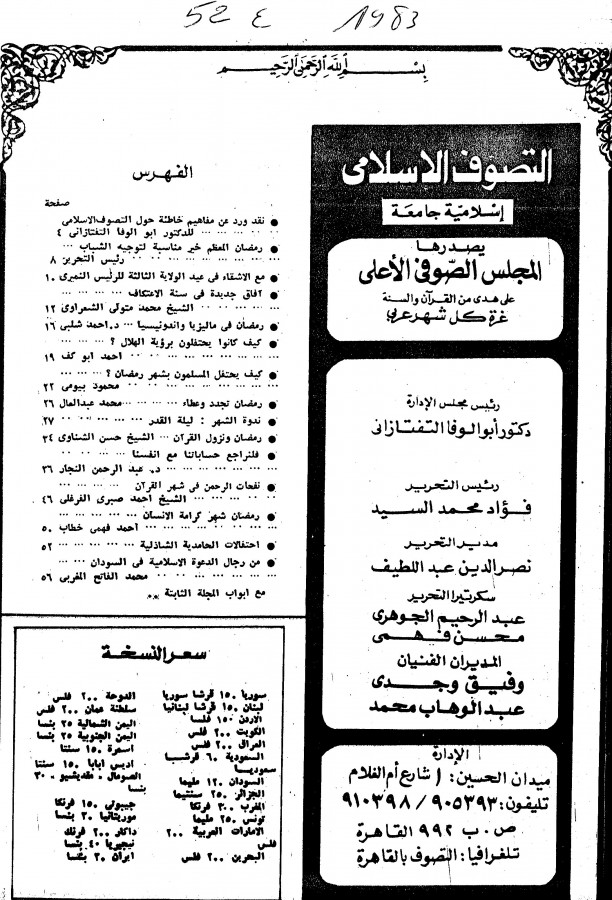 52 ع 1983
بسم الله الرحمن الرحيم
التصوف الاسلامى
إسلامية جامعة
يصدرها
المجلس الصوفى الأعلى
على هدى من القرآن والسنة
غرة كل شهر عربي
رئيس مجلس الإدارة
دكتور أبو الوفا التفتازانى
رئيس التحرير
فؤاد محمد السيد
مدير التحرير
نصر الدين عبد اللطيف
سكرتيرا التحرير
عبد الرحيم الجوهرى
محسن فهمى
المديران الفنيان
وفيق وجدى
عبد الوهاب محمد
الإدارة
ميدان الحسين: ١ شارع أم الغلام
تليفون: ٩٠٥٣٩٣ / ٩١٠٣٩٨
ص . ب ٩٩٢ القاهرة
تلغرافيا: التصوف بالقاهرة
الفهرس
صفحة
● نقد ورد عن مفاهيم خاطئة حول التصوف الاسلامى
... ... ... للدكتور ابو الوفا التفتازانى ٤
● رمضان المعظم خير مناسبة لتوجيه الشباب ...
... ... ... ... ... رئيس التحرير ٨
● مع الاشقاء فى عيد الولاية الثالثة للرئيس النميرى ١٠
● آفاق جديدة فى سنة الاعتكاف ... ... ...
... ... ... الشيخ محمد متولى الشعراوى ١٢
● رمضان فى ماليزيا واندونيسيا ... د. احمد شلبى ١٦
● كيف كانوا يحتفلون برؤية الهلال ؟ ... ...
... ... ... ... ... احمد ابو كف ١٩
● كيف يحتفل المسلمون بشهر رمضان ؟ ... ...
... ... ... ... ... محمود بيومى ٢٢
● رمضان تجدد وعطاء ... ... محمد عبد العال ٢٦
● ندوة الشهر : ليلة القدر ... ... ... ٢٧
● رمضان ونزول القرآن ... الشيخ حسن الشناوى ٣٤
● فلنراجع حساباتنا مع انفسنا
... ... ... ... د. عبد الرحمن النجار ٣٦
● نفحات الرحمن فى شهر القرآن ... ... ...
... ... ... الشيخ احمد صبرى الفرغلى ٤٦
● رمضان شهر كرامة الانسان ... ... ...
... ... ... ... احمد فهمى خطاب ٥٠
● احتفالات الحامدية الشاذلية ... ... ... ٥٢
● من رجال الدعوة الاسلامية فى السودان ...
... ... ... ... محمد الفاتح المغربى ٥٦
مع ابواب المجلة الثابتة **
سعر النسخة
سوريا ١٥٠ قرشا سوريا
لبنان ١٥٠ قرشا لبنانيا
الاردن ١٥٠ فلسا
الكويت ٢٠٠ فلس
العراق ٢٠٠ فلس
السعودية ٦٠ قرشا
سعوديا
السودان ١٢٠ مليما
الجزائر ٢٥٠ سنتيما
المغرب ٣٠٠ فرنكا
تونس ٢٥٠ مليما
الامارات العربية ٢٠٠
فلس
البحرين ٢٠٠ فلس
الدوحة ٢٠٠ فلس
سلطنة عمان ٢٠٠ فلس
اليمن الشمالية ٢٥ بنسا
اليمن الجنوبية ٢٥ بنسا
اسمرة ١٥٠ سنتا
اديس ابابا ١٥٠ سنتا
الصومال . مقديشيو ٣٠
بنسا
جيبوتى ١٥٠ فرنكا
موريتانيا ٣٠ بنسا
داكار ٢٠٠ فرنك
نيجيريا ٤٠ بنسا
ايران ٣٠ بنسا